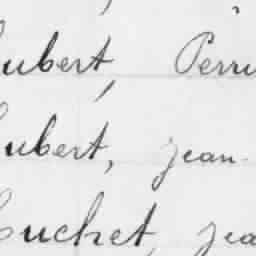 ubert, Perr
ubert, jean
uchet, jea